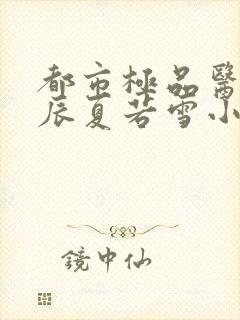 都市極品醫
辰夏若雪小
鏡中仙